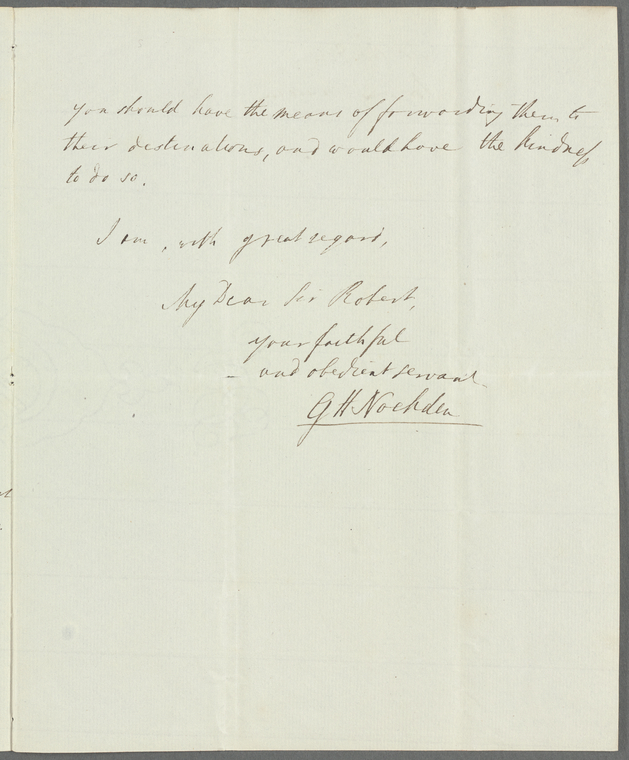 you should have the means of forwarding them to
their destinations, and would have the kindness
to do so.
I am, with great regard,
My Dear Sir Robert,
your faithful
and obedient servant
G H Noehden